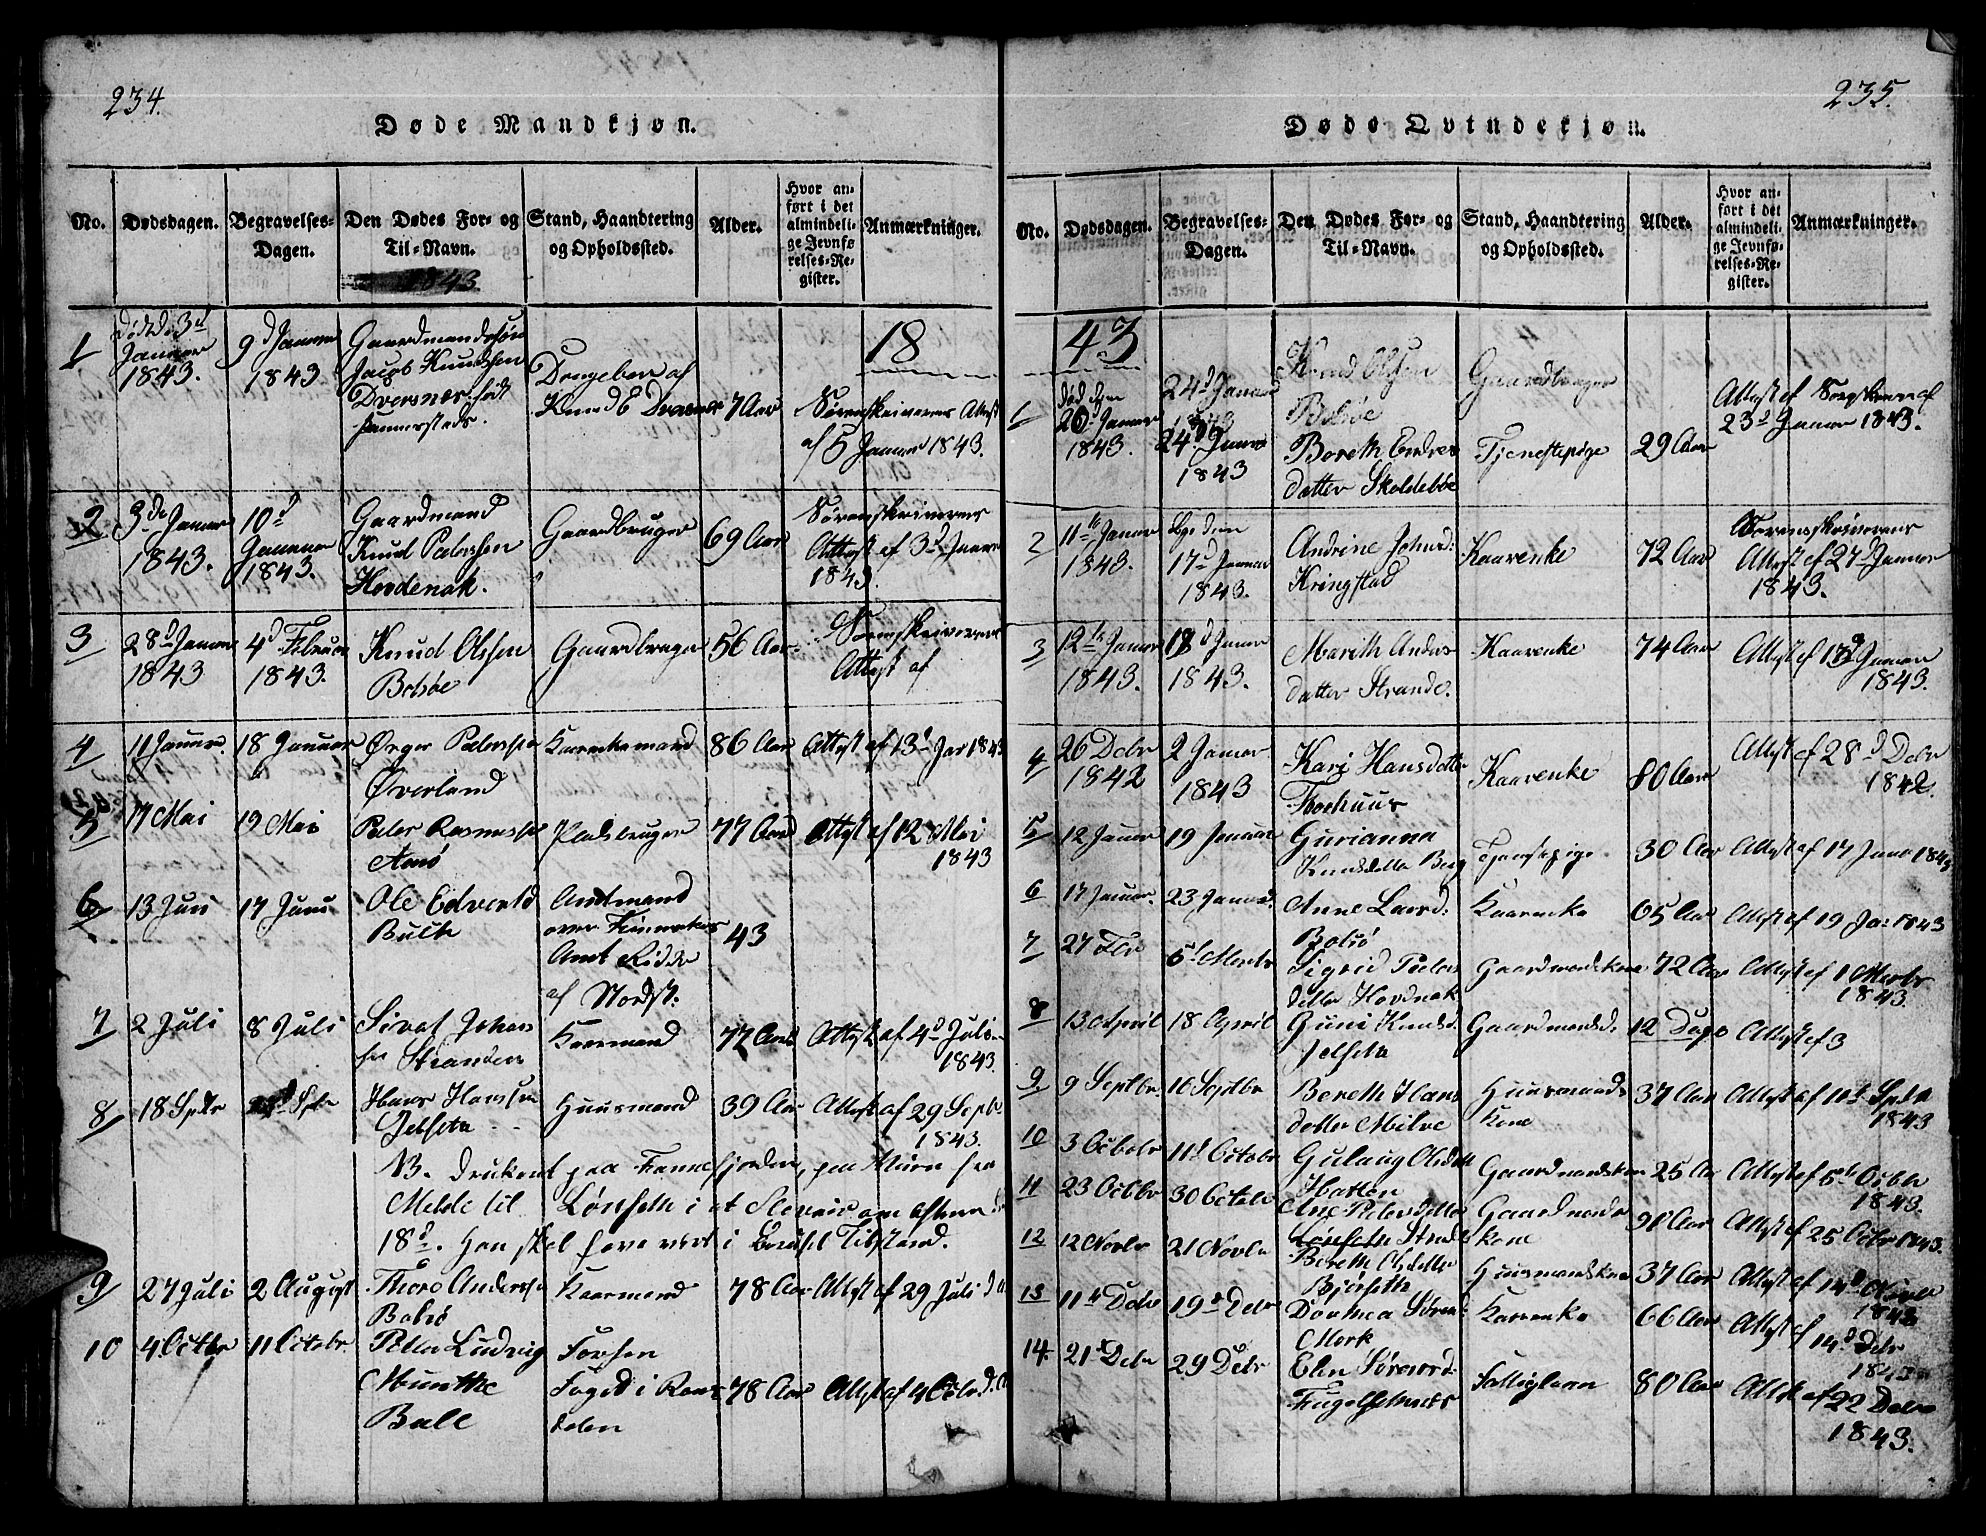 234.
Døde Mandkjøn.
No.
Dødsdagen.
Begravelses-
Dagen.
Den Dødes For- og
Til-Navn.
1843
Stand, Haandtering
og Opholdssted.
Alder.
Hvor an-
ført i det
almindeli-
ge Jevnfø-
relses-Re-
gister.
Anmærkninger.
18
1
3d
Januar
1843.
9d Januar
1843
Gaardmandssøn
Jacob Knudsen
Drengebarn af
Knud E
7 Aar
Sørenskriverens Attest
af 5 Januar 1843.
2
3de Januar
1843.
10d
Januar
1843.
Gaardmand
Knud Pedersen
Hovdenak.
Gaardbruger
69 Aar
Sørenskriverens
Attest af 3d Januar
1843
3
28d Januar
1843
4d Februar
1843.
Knud Olsen
Bolsøe
Gaardbruger
56 Aar
Sørenskriverens
Attest af
4
11 Januar
18 Januar
Pedersen
Øverland
Kaarenkemand
86 Aar
Attest af 13d Jan 1843
5
17 Mai
19 Mai
Peder Rasmussen
Arnø
Pladsbruger
77 Aar
Attest af 12 Mai
1843
6
13 Juni
17 Juni
Ole Edvard
Buck
Amtmand
over Finmarkens
Amt Ridder
af Nordst.
43
7
2 Juli
8 Juli
Sivat Johan
sen Stranden
Kaarmand
77 Aar
Attest af 4d Juli
1843.
8
18 Sptr
Sptr
Hans Hansen
Jelseta
Huusmand
39 Aar
Attest af 29 Septbr
1843.
NB. Druknet paa Fannefjorden, paa Turen fra
Melde til Lønseth i et Slevaie om Aftenen d.
18d. Han skal have vert i beruset Tilstand.
9
27 Juli
2 August
Thore Andersen
Bolsø
Kaarmand
78 Aar
Attest af 29 Juli d. A.
10
4 Octbr
11 Octobr
Peter Ludvig
Munthe
Bull
Forhen
Foged i Roms
dalen
78 Aar
Attest af 4 Octbr d. A.
235.
Døde Qvindekjøn.
No.
Dødsdagen.
Begravelses-
Dagen.
Den Dødes For- og
Til-Navn.
Stand, Haandtering
og Opholdssted.
Alder.
Hvor an-
ført i det
almindeli-
ge Jevnfø-
relses-Re-
gister.
Anmærkninger.
43
24d Januar
1843
Knud Olsen
Bolsøe
Gaardbruger
1
død den
20 Januar
1843.
24d Januar
1843
Bereth Endres
datter Skoldebøe
Tjenestepige
29 Aar
Attest af Sorenskriver af
23d Januar 1843.
2
11te Januar
1843.
17d Januar
1843.
Andrine Johnsd:
Kringstad
Kaarenke
72 Aar
Sorenskriverens
Attest af 27d Januar
1843.
3
12te Januar
1843.
18d Januar
1843.
Mareth Anders
datter Strande.
Kaarenke
74 Aar
Attest af 13d Januar
1843.
4
26 Debr
1842
2 Januar
1843
Kari Hansdatter
Thorhuus
Kaarenke
80 Aar
Attest af 28d Debr
1842.
5
12 Januar
19 Januar
Gurianna
Knudsdatter Berg
Tjenestepige
30 Aar
Attest af 17 Janr 1843
6
17 Januar
23 Januar.
Anne Larsd:
Bolsø
Kaarenke
65 Aar
Attest af 19 Ja: 1843
7
27 Febr
5d Martz
Sigrid Peders
datter Hovdnak
Gaardmandskone
72 Aar
Attest af 1 Martz
1843.
8
13 April
18 April
Guni Knudsd:
Jelseta
Gaardmandsd:
12 Dage
Attest af 3
9
9 Septbr
16 Septbr
Bereth Hans
datter Milve
Huusmands
kone
37 Aar
Attest af 10d Septbr
1843
10
3 Octobr
11d Octobr
Gulaug Olsdatter
Hatten
Gaardmandskone
25 Aar
Attest af 5te Octbr
1843.
11
23 Octbr
30 Octobr
Ane Pedersdatter
Lønseth Strande
Gaardmands
kone
90 Aar
Attest af 25 Octbr 1843.
12
12 Novbr
21 Novbr
Bereth Olsdatter
Bjørseth
Huusmandskone
37 Aar
Attest af 14d Novbr
1842
13
11te Debr
19d Debr
Dorthea Sørensd:
Mork
Kaarenke
66 Aar
Attest af 14d Debr
1843
14.
21d Debr
29 Debr
Elen Siversd:
Fuglsetnes
Fattiglæm
80 Aar
Attest af 22 Debr
1843.